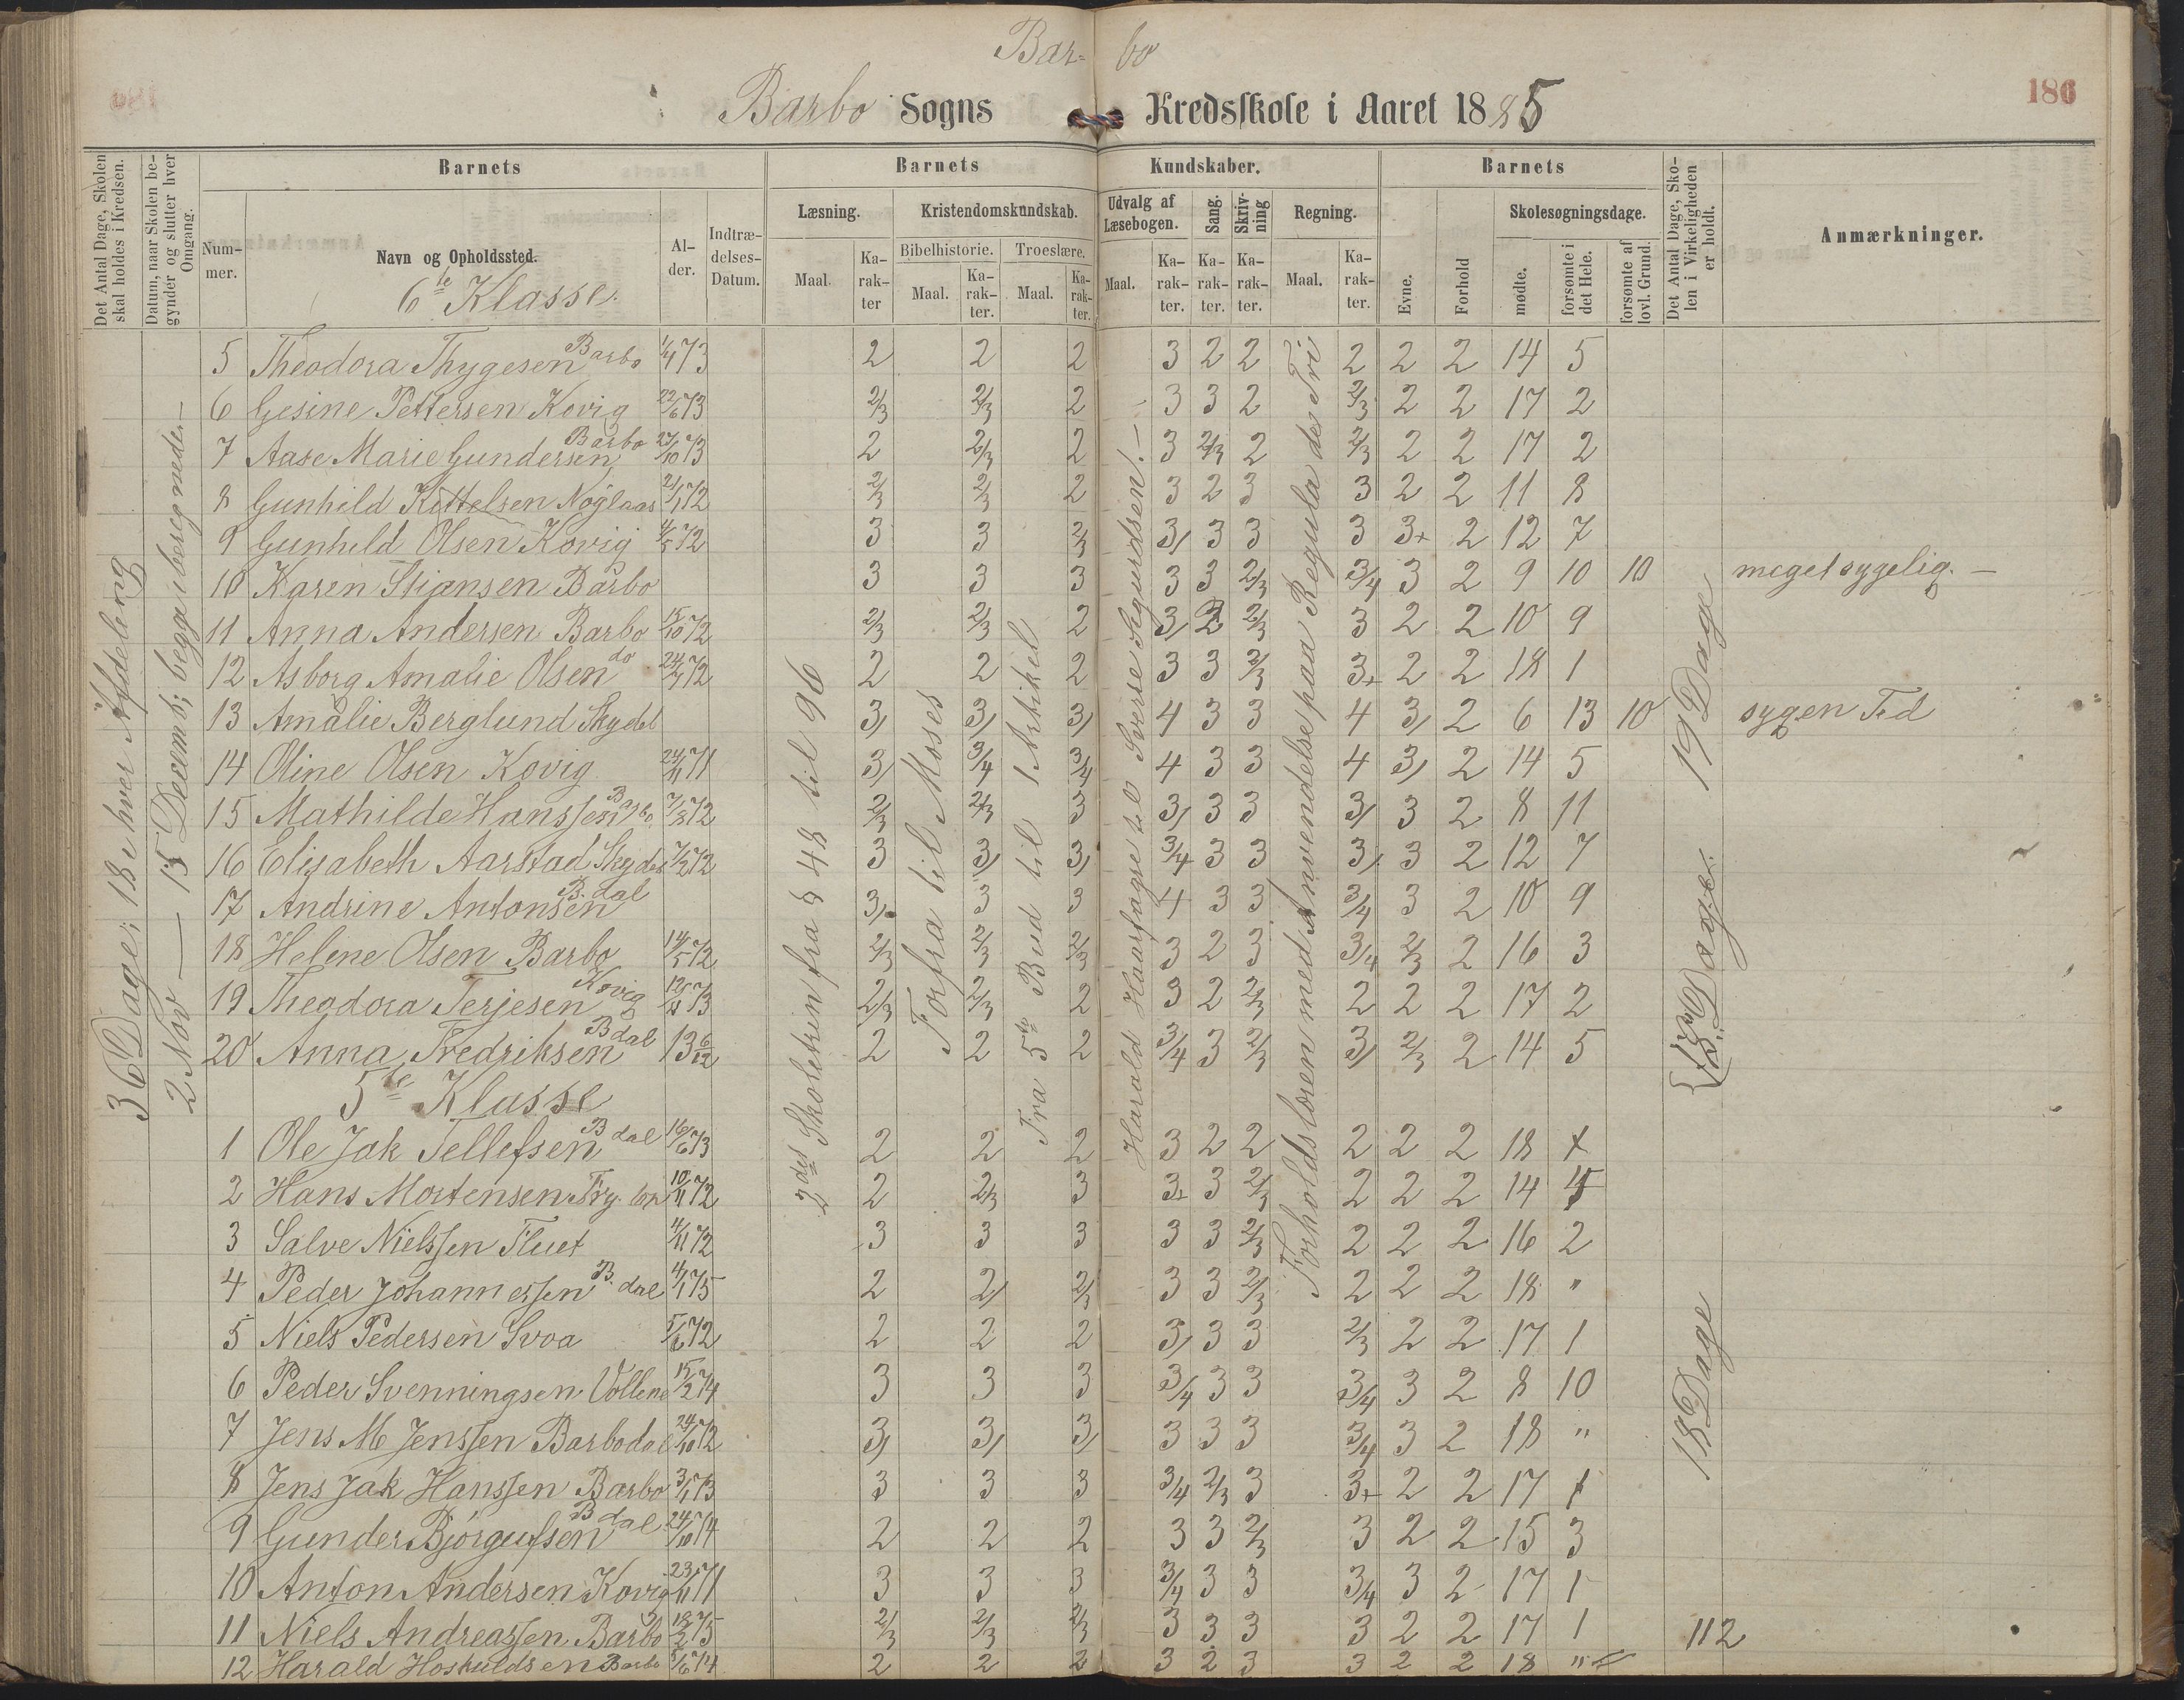 Bar- bo
186
Barbo Sogns Kredsskole i Aaret 1885
Det Antal Dage, Skolen skal holdes i Kredsen.
Datum, naar Skolen begynder og slutter hver Omgang.
Barnets
Num-mer.
Navn og Opholdssted.
6te Klasse.
Al-der.
Indtræ-delses-Datum.
Barnets Kundskaber.
Læsning.
Maal. Ka-rak-ter
Kristendomskundskab.
Bibelhistorie. Troeslære.
Maal. Ka-rak-ter. Maal. Ka-rak-ter.
Udvalg af Læsebogen.
Maal. Ka-rak-ter.
Sang. Ka-rak-ter.
Skriv-ning Ka-rak-ter.
Regning.
Maal. Ka-rak-ter.
Barnets
Evne. Forhold
Skolesøgningsdage.
mødte. forsømte i det Hele. forsømte af lovl. Grund.
Det Antal Dage, Sko-len i Virkeligheden er holdt.
Anmærkninger.
36 Dage; 18 i hver Afdeling
2 Nov — 15 Decemb; begge iberegnede. —
2det Skoletrin fra § 48 til 96
Forfra til Moses
Fra 5te Bud til 1 Artikel
Harald Haarfagre til Sverre Sigurdsen. —
Forholdslæren med Anvendelse paa Regula de Tri
19 Dage
18 Dage
5 Theodora Thygesen Barbo 1/4 73 2 2 2 3 2 2 2 2 2 14 5
6 Gesine Pettersen Kovig 22/6 73 2/3 2/3 2 3 3 2 2/3 2 2 17 2
7 Aase Marie Gundersen Barbo 27/10 73 2 2/3 2 3 2/3 2 2/3 2 2 17 2
8 Gunhild Kittelsen Nøglaas 21/1 72 2/3 2/3 2 3 2 3 3 2 2 11 8
9 Gunhild Olsen Kovig 4/5 72 3 3 2/3 3/ 3 3 3 3+ 2 12 7
10 Karen Stiansen Barbo 3 3 3 3 3 2/3 3/4 3 2 9 10 10 meget sygelig. —
11 Anna Andersen Barbo 15/10 72 2/3 2/3 2 3/ 2 2/3 3 2 2 10 9
12 Asborg Amalie Olsen do 24/7 72 2 2 2 3 3 2/3 3+ 2 2 18 1
13 Amalie Berglund Skydel 3/ 3/ 3/ 4 3 3 4 3/ 2 6 13 10 syg en Tid
14 Oline Olsen Kovig 24/11 71 3/ 3/4 3/4 4 3 3 4 3/ 2 14 5
15 Mathilde Hanssen Barbo 7/8 72 2/3 2/3 3 3/ 3 3 3/ 3 2 8 11
16 Elisabeth Aarstad Skydel 7/2 72 3 3/ 3/ 3/4 3 3 3/ 3 2 12 7
17 Andrine Antonsen B.dal 3/ 3 3 4 3 3 3/4 3 2 10 9
18 Helene Olsen Barbo 14/5 72 2/3 2/3 2/3 3 2 3 3/4 2/3 2 16 3
19 Theodora Terjesen Kovig 73 2/3 2/3 2 3 2 2/3 2 2 2 17 2
20 Anna Fredriksen Bdal 13 6/12 2 2 2 3/4 3 2/3 3/ 2/3 2 14 5
5te Klasse
1 Ole Jak Tellefsen Bdal 16/6 73 2 2 2 3 2 2 2 2 2 18
2 Hans Mortensen 10/11 72 2 2/3 3 3+ 3 2/3 2 2 2 14 4
3 Salve Nielssen Fluet 4/11 72 3 3 3 3 3 2/3 2 2 2 16 2
4 Peder Johannessen B.dal 4/1 75 2 2/ 2/3 3 3 2/3 2 2 2 18 "
5 Niels Pedersen Svoa 5/6 72 2 2 2 3/ 3 3 2/3 2 2 17 1
6 Peder Svenningsen Vollene 15/2 74 3 3 3 3/4 3 3 3/4 3 2 8 10
7 Jens M Jenssen Barbodal 24/10 72 3/ 3/ 3/ 3 3 3 3/4 3 2 18 "
8 Jens Jak Hanssen Barbo 3/1 73 3 3 3 3/4 2/3 3 3+ 2 2 17 1
9 Gunder Bjorgufsen Bdal 24/10 74 2 2 2 3 3 2/3 3 2 2 15 3
10 Anton Andersen Kovig 23/11 71 3 3 3 3/4 3 3 3/4 3 2 17 1
11 Niels Andreassen Barbo 18/2 75 2/3 2/3 2/3 3 3 3 3 2 2 17 1 112
12 Harald Hoskuldsen Barbo 74 2 2 2 3 2 3 3 2 2 18 "
18 Dage